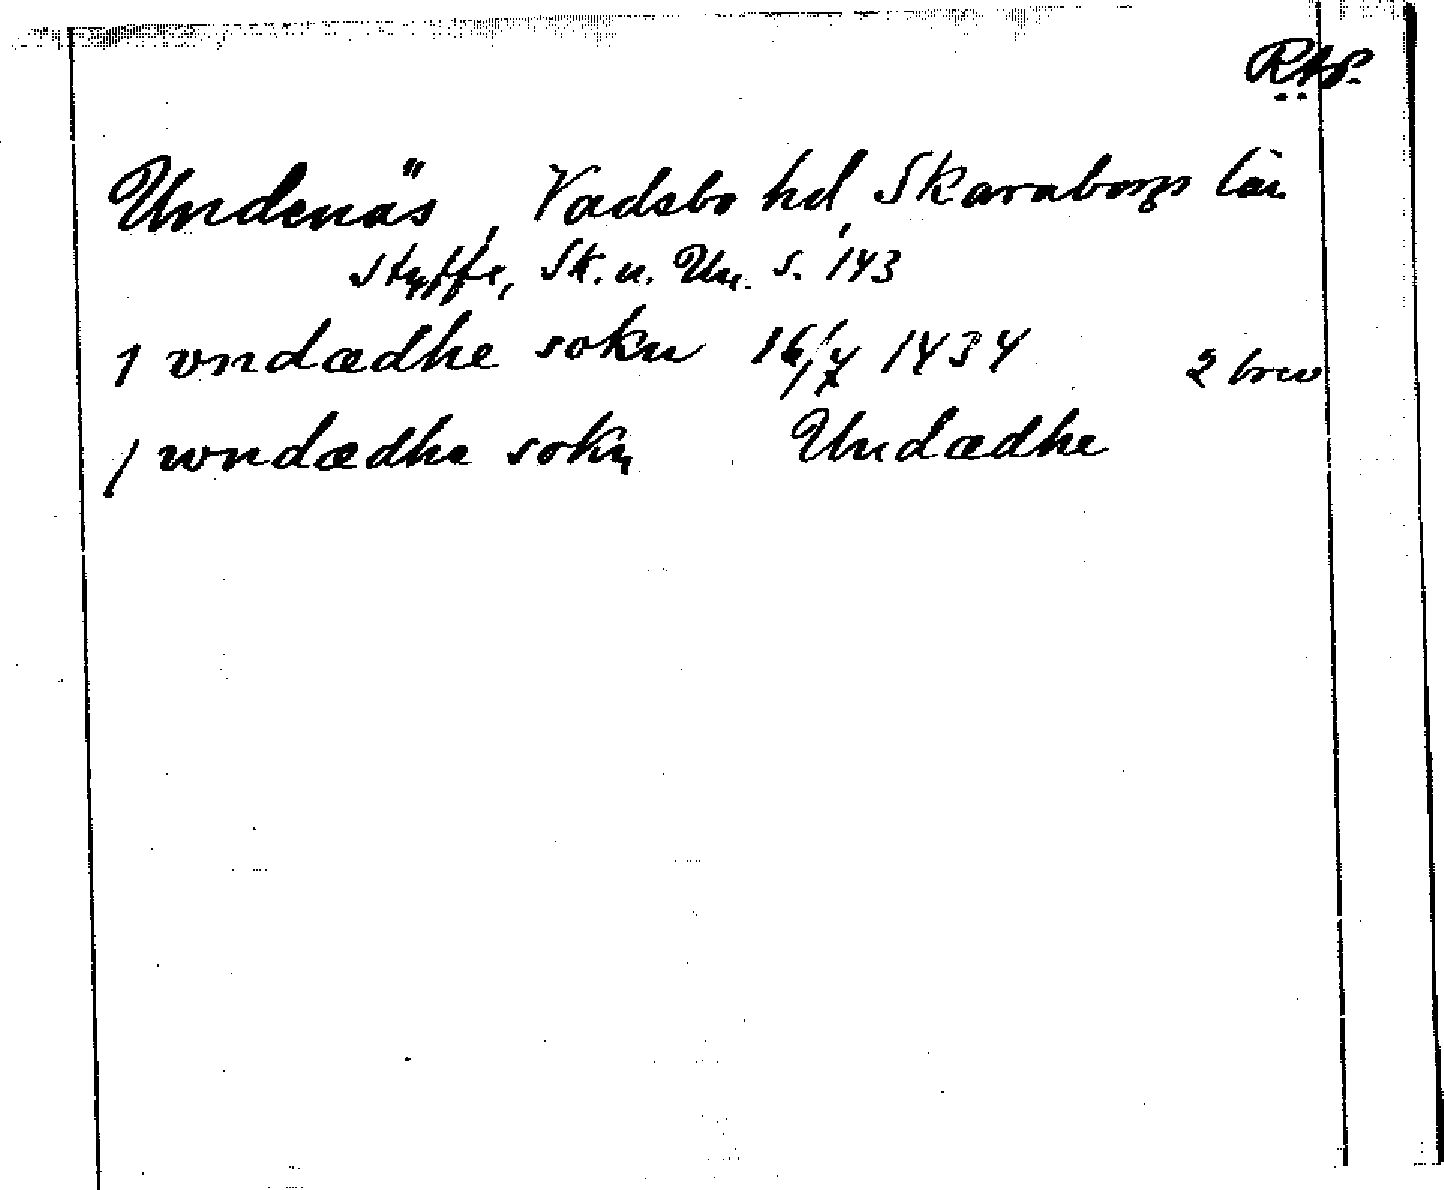 RAP.
Undenäs, Vadsbo hd, Skaraborgs län
Styffe, Sk. u. Un. s. 143
1 vndædhe sokn 16/7 1434 2 brev
j wndædhe sokn Undædhe